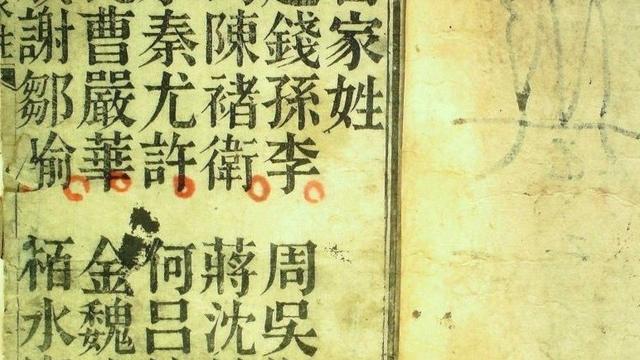 家姓
錢孫李 周吳
陳褚衛 蔣沈
秦尤許 何吕
曹嚴華 金魏
謝鄒喻 栢水
姓